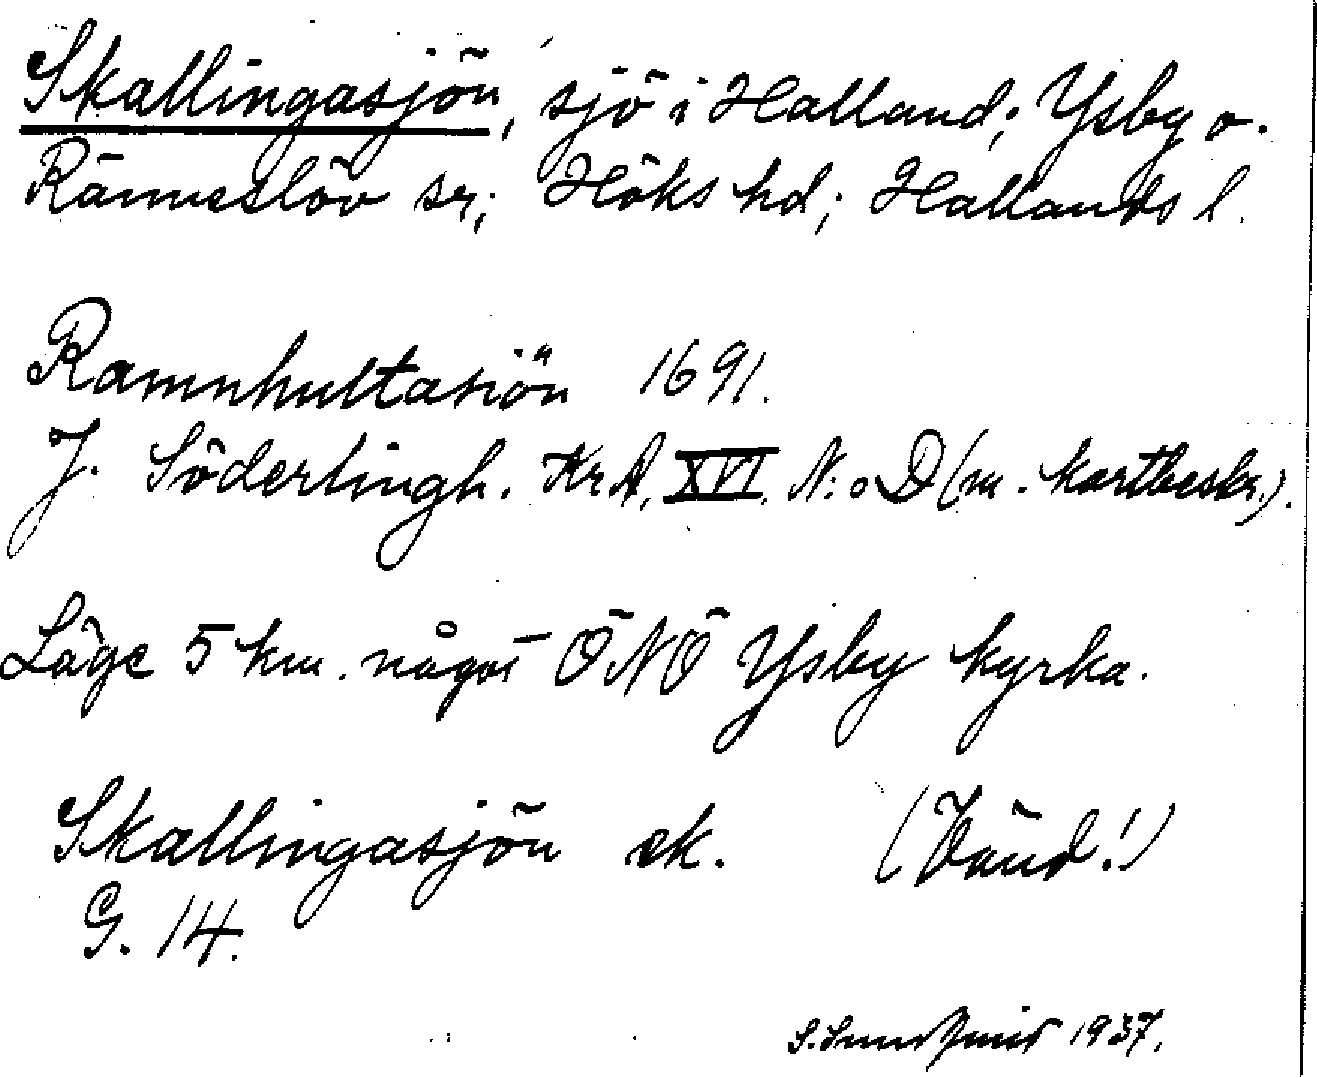 Skallingasjön, sjö i Halland; Ysby o.
Ränneslöv sr; Höks hd; Hallands l.
Ramnhultasiön 1691.
J. Söderlingh. Kr A, XVI, N:o D (m. kartbeskr.).
Läge 5 km. något ÖNÖ Ysby kyrka.
Skallingasjön ek. (Vänd!)
G. 14.
S. 1937.